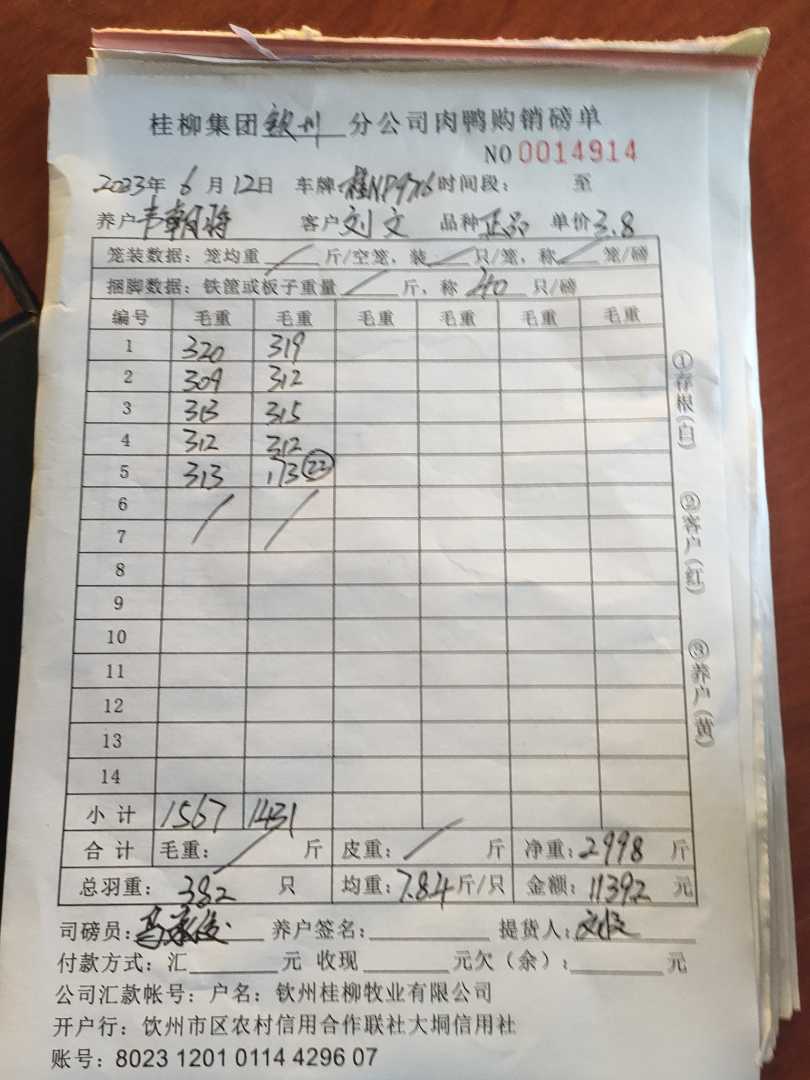 桂柳集团钦州分公司肉鸭购销磅单
NO 0014914
2023年 6 月 12日 车牌: 桂NP976 时间段: 至
养户 韦朝将 客户 刘文 品种 正品 单价 3.8
笼装数据: 笼均重 / 斤/空笼, 装 / 只/笼, 称 / 笼/磅
捆脚数据: 铁筐或板子重量 / 斤, 称 40 只/磅
编号 毛重 毛重 毛重 毛重 毛重 毛重
1 320 319
2 309 312
3 313 315
4 312 312
5 313 173 22
6 / /
7
8
9
10
11
12
13
14
小 计 1567 1431
合 计 毛重: / 斤 皮重: / 斤 净重: 2998 斤
总羽重: 382 只 均重: 7.84 斤/只 金额: 11392 元
司磅员: 养户签名: 提货人: 刘文
付款方式: 汇 元 收现 元欠(余): 元
公司汇款帐号: 户名: 钦州桂柳牧业有限公司
开户行: 钦州市区农村信用合作联社大垌信用社
账号: 8023 1201 0114 4296 07
①存根(白)
②客户(红)
③养户(黄)